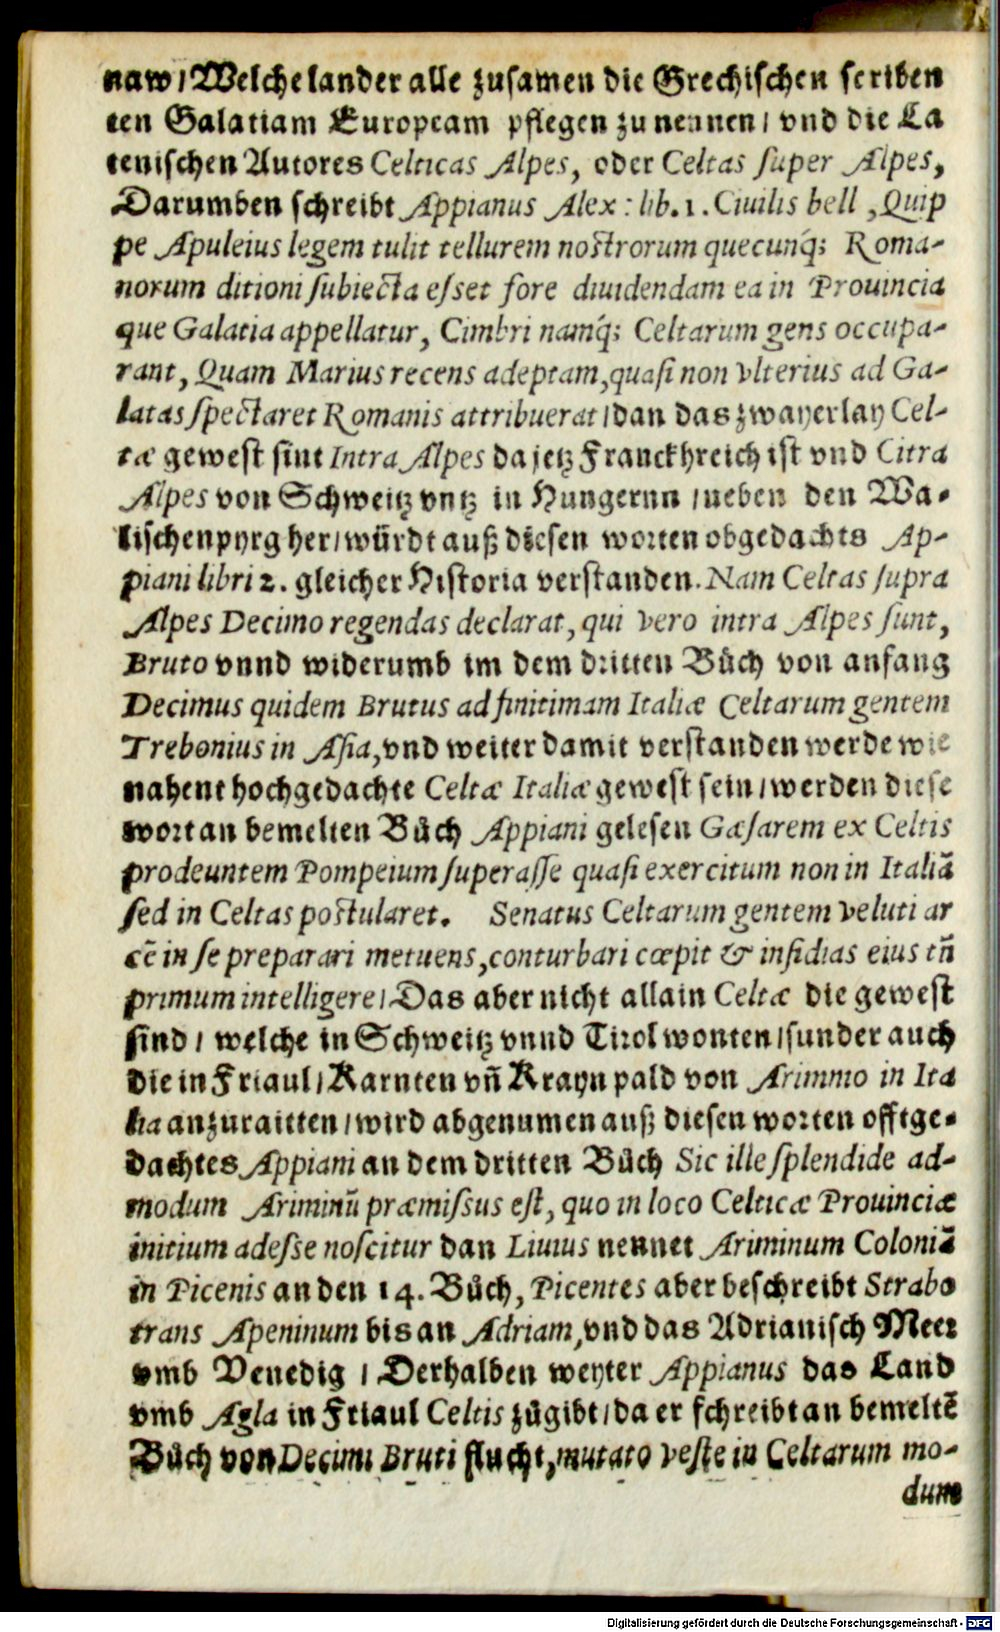 naw / Welche lander alle zusamen die Grechischen scriben
ten Galatiam Europeam pflegen zu nennen / vnd die La
tenischen Autores Celticas Alpes, oder Celtas super Alpes,
Darumben schreibt Appianus Alex: lib. 1. Ciuilis bell, Quip
pe Apuleius legem tulit tellurem nostrorum quecunq́; Roma-
norum ditioni subiecta esset fore diuidendam ea in Prouincia
que Galatia appellatur, Cimbri namq́; Celtarum gens occupa-
rant, Quam Marius recens adeptam, quasi non vlterius ad Ga-
latas spectaret Romanis attribuerat / dan das zwayerlay Cel-
tæ gewest sint Intra Alpes da jetz Franckhreich ist vnd Citra
Alpes von Schweitz vntz in Hungernn / neben den Wa-
lischen pyrg her / würdt auß diesen worten obgedachts Ap-
piani libri 2. gleicher Historia verstanden. Nam Celtas supra
Alpes Decimo regendas declarat, qui vero intra Alpes sunt,
Bruto vnnd widerumb im dem dritten Bůch von anfang
Decimus quidem Brutus ad finitimam Italiæ Celtarum gentem
Trebonius in Asia, vnd weiter damit verstanden werde wie
nahent hochgedachte Celtæ Italiæ gewest sein / werden diese
wort an bemelten Bůch Appiani gelesen Gæsarem ex Celtis
prodeuntem Pompeium superasse quasi exercitum non in Italiā
sed in Celtas postularet. Senatus Celtarum gentem veluti ar
cē in se preparari metuens, conturbari cœpit & insidias eius tñ
primum intelligere / Das aber nicht allain Celtæ die gewest
sind / welche in Schweitz vnnd Tirol wonten / sunder auch
die in Friaul / Karnten vñ Krayn pald von Arimmo in Ita
lia anzuraitten / wird abgenumen auß diesen worten offtge-
dachtes Appiani an dem dritten Bůch Sic ille splendide ad-
modum Ariminū præmissus est, quo in loco Celticæ Prouinciæ
initium adesse noscitur dan Liuius nennet Ariminum Coloniā
in Picenis an den 14. Bůch, Picentes aber beschreibt Strabo
trans Apeninum bis an Adriam, vnd das Adrianisch Meer
vmb Venedig / Derhalben weyter Appianus das Land
vmb Agla in Friaul Celtis zůgibt / da er schreibt an bemeltē
Bůch von Decimi Bruti flucht, mutato veste in Celtarum mo-
dum
Digitalisierung gefördert durch die Deutsche Forschungsgemeinschaft - DFG